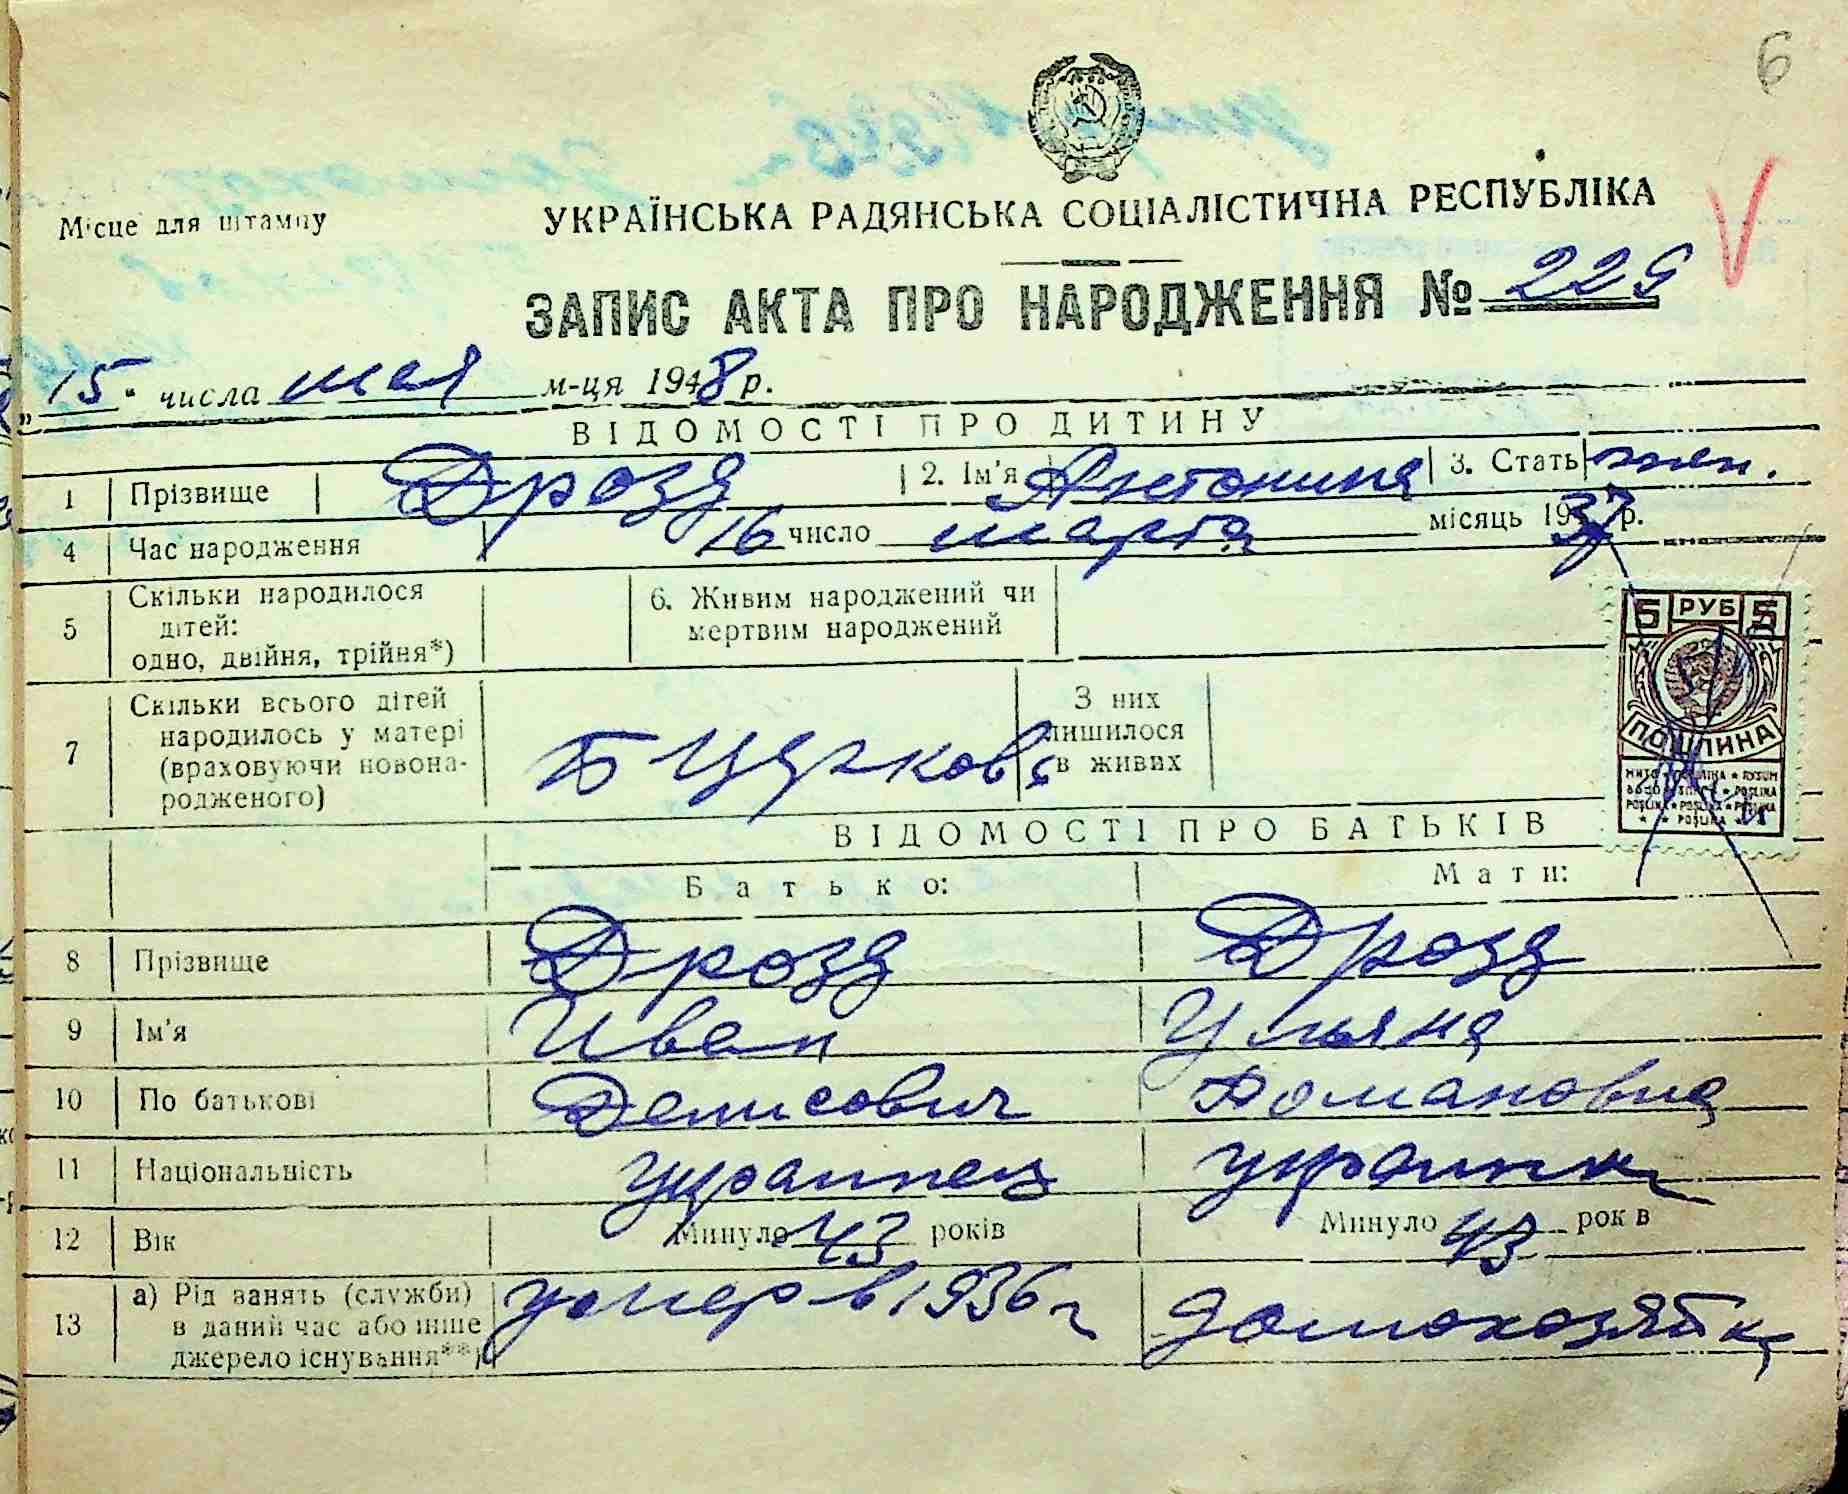 6
Місце для штампу
УКРАЇНСЬКА РАДЯНСЬКА СОЦІАЛІСТИЧНА РЕСПУБЛІКА
ЗАПИС АКТА ПРО НАРОДЖЕННЯ № 229
„15“ числа мая м-ця 1948 р.
ВІДОМОСТІ ПРО ДИТИНУ
1 Прізвище Дрозд 2. Ім'я Антонина 3. Стать жен.
4 Час народження 16 число марта місяць 1937 р.
5 Скільки народилося дітей: одно, двійня, трійня*)
6. Живим народжений чи мертвим народжений
7 Скільки всього дітей народилось у матері (враховуючи новонародженого) Б Церковь З них лишилося в живих
5 РУБ 5
ПОШЛИНА
ВІДОМОСТІ ПРО БАТЬКІВ
Батько: Мати:
8 Прізвище Дрозд Дрозд
9 Ім'я Иван Ульяна
10 По батькові Денисович Романовна
11 Національність украинец украинк
12 Вік Минуло 43 років Минуло 43 років
13 а) Рід занять (служби) в даний час або інше джерело існування**) умер в 1936 г домохозяйка